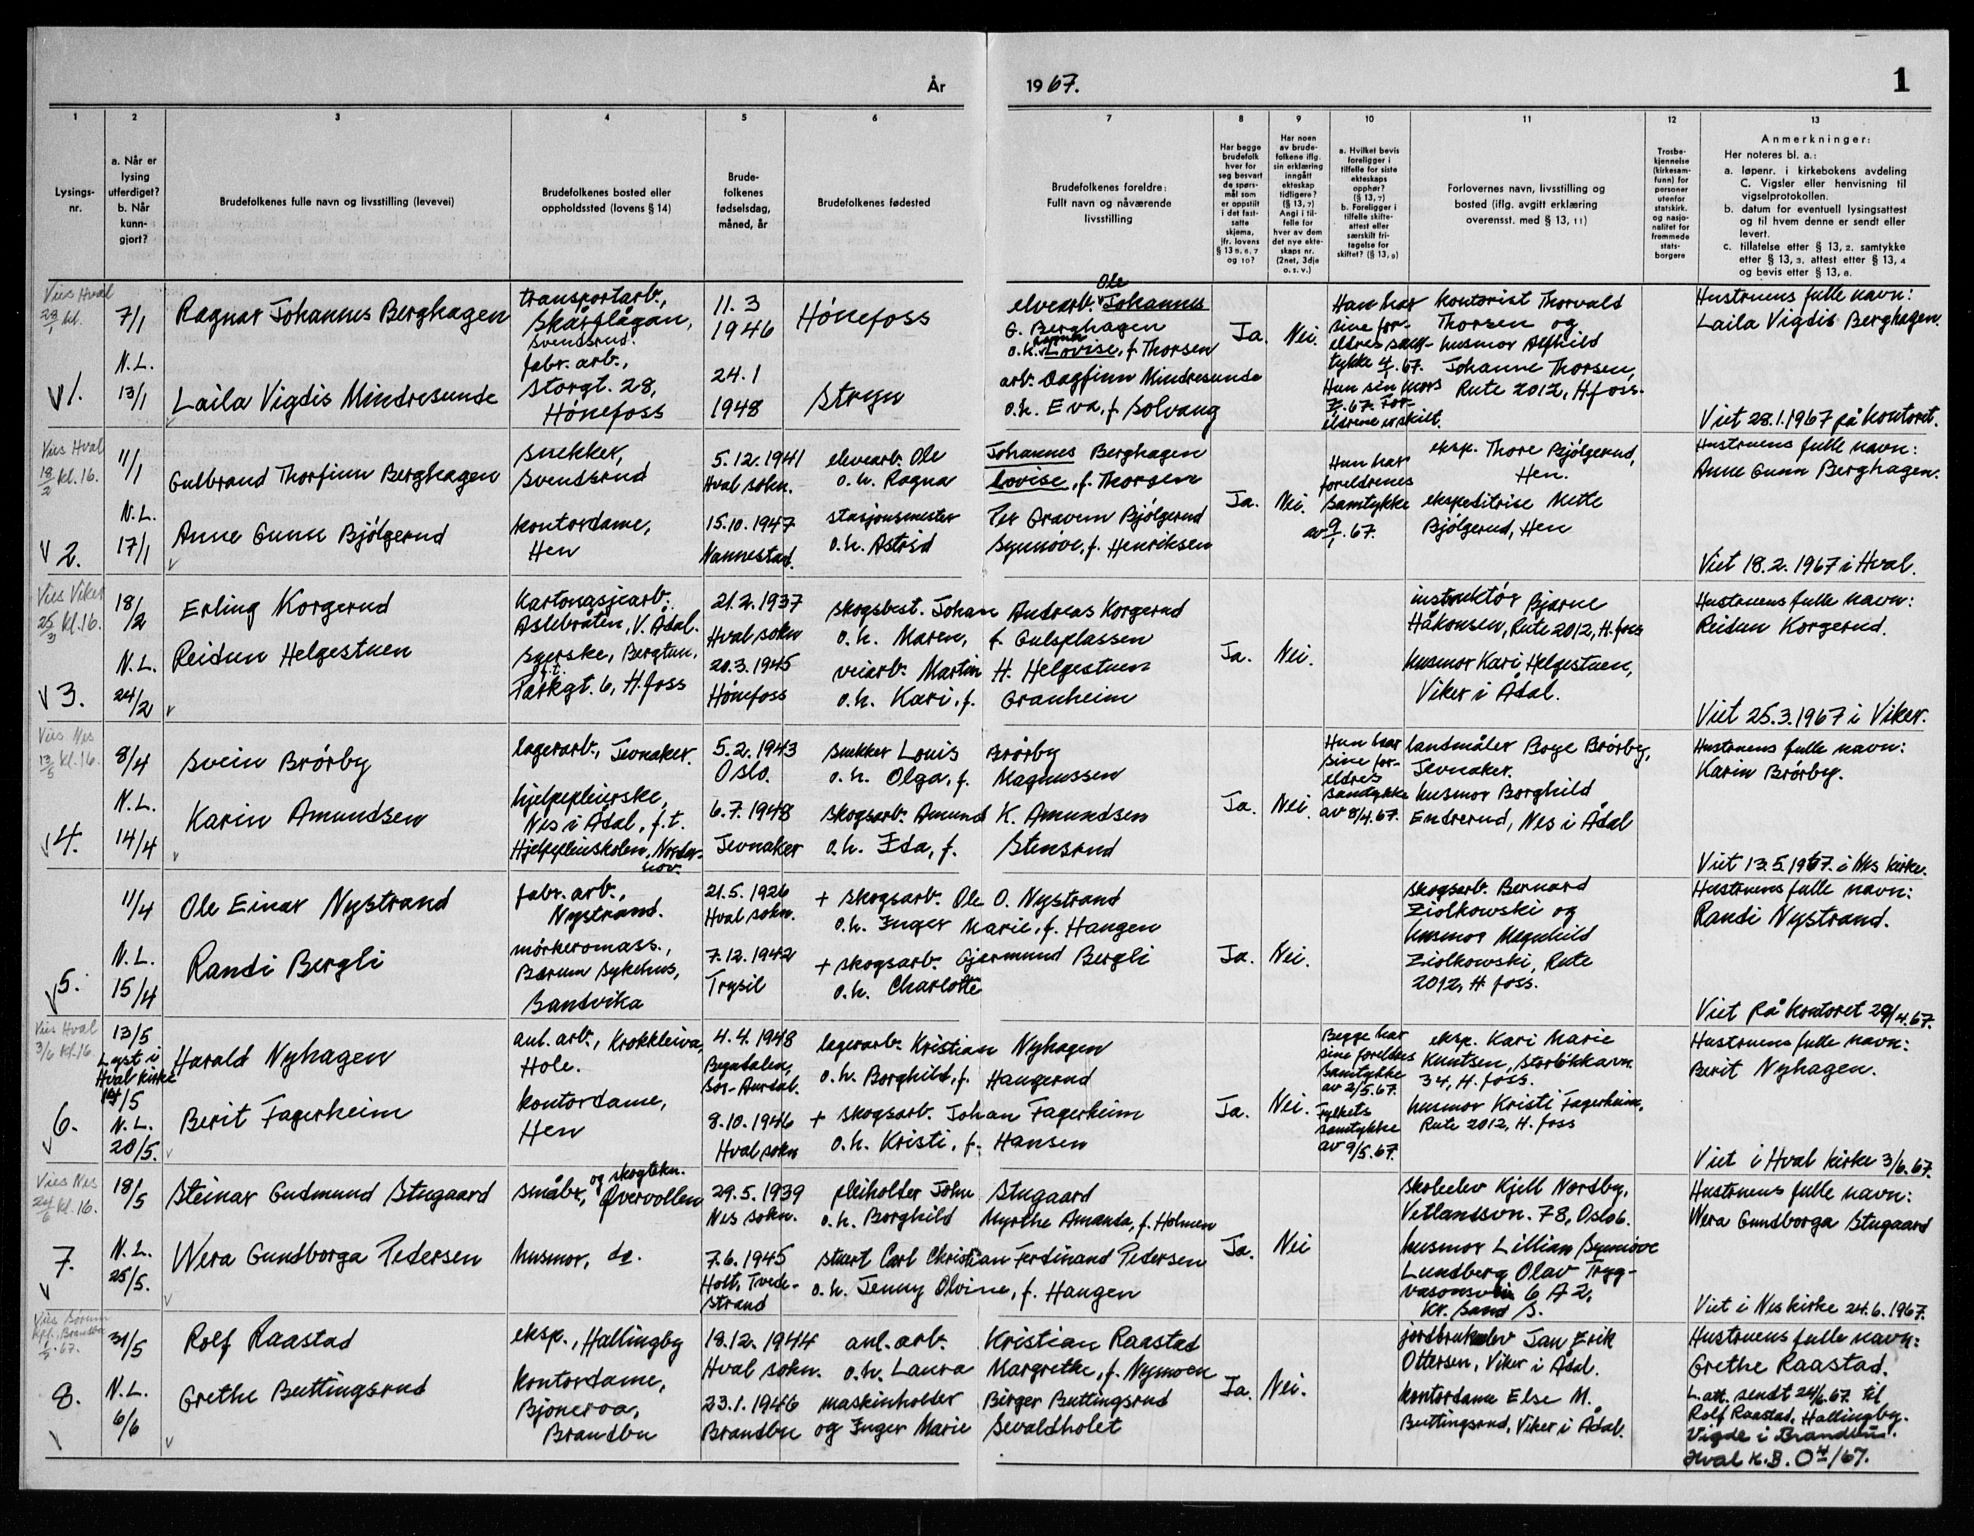 År 1967.
1
1 2 3 4 5 6 7 8 9 10 11 12 13
Lysings-
nr.
a. Når er
lysing
utferdiget?
b. Når
kunn-
gjort?
Brudefolkenes fulle navn og livsstilling (levevei)
Brudefolkenes bosted eller
oppholdssted (lovens § 14)
Brude-
folkenes
fødselsdag,
måned, år
Brudefolkenes fødested
Brudefolkenes foreldre:
Fullt navn og nåværende
livsstilling
Har begge
brudefolk
hver for
seg besvart
de spørs-
mål som
er oppstilt
i det fast-
satte
skjema,
jfr. lovens
§ 13 5, 6, 7
og 10?
Har noen
av brude-
folkene iflg.
sin erklæring
inngått
ekteskap
tidligere?
(§ 13, 7)
Angi i til-
felle for
hver av dem
det nye ekte-
skaps nr.
(2net, 3dje
o. s. v.)
a. Hvilket bevis
foreligger i
tilfelle for siste
ekteskaps
opphør?
(§ 13, 7)
b. Foreligger i
tilfelle skifte-
attest eller
særskilt fri-
tagelse for
skiftet? (§ 13, 9)
Forlovernes navn, livsstilling og
bosted (iflg. avgitt erklæring
overensst. med § 13, 11)
Trosbe-
kjennelse
(kirkesam-
funn) for
personer
utenfor
statskirk.
og nasjo-
nalitet for
fremmede
stats-
borgere
Anmerkninger:
Her noteres bl. a.:
a. løpenr. i kirkebokens avdeling
C. Vigsler eller henvisning til
vigselprotokollen.
b. datum for eventuell lysingsattest
og til hvem denne er sendt eller
levert.
c. tillatelse etter § 13, 2. samtykke
etter § 13, 3. attest etter § 13, 4
og bevis etter § 13, 8.
Vies Hval
28/1 kl.
V 1.
7/1
N.L.
13/1
Ragnar Johannes Berghagen
Laila Vigdis Mindresunde
transportarb.,
Skårflågan,
Svendsrud.
fabr. arb.,
Storgt. 28,
Hønefoss
11. 3
1946
24. 1
1948
Hønefoss
Stryn
Ole
elvearb. Johannes
G. Berghagen
Ragna
o.h. Lovise, f. Thorsen
arb. Dagfinn Mindresunde
o.h. Eva, f. Solvang
Ja.
Nei.
Han har
sine for-
eldres sam-
tykke 4/1.67.
Hun sin mors
7/1.67. For-
eldrene er skilt.
kontorist Thorvald
Thorsen og
husmor Alfhild
Johanne Thorsen,
Rute 2012, H.foss.
Hustruens fulle navn:
Laila Vigdis Berghagen.
Viet 28.1.1967 på kontoret.
Vies Hval
18/2 kl. 16.
V 2.
11/1
N.L.
17/1
Gulbrand Thorfinn Berghagen
Anne Gunn Bjølgerud
snekker,
Svendsrud
kontordame,
Hen
5.12.1941
Hval sokn.
15.10.1947
Nannestad.
elvearb. Ole Johannes Berghagen
o.h. Ragna Lovise, f. Thorsen
stasjonsmester Per Gravem Bjølgerud
o.h. Astrid Synnøve, f. Henriksen
Ja.
Nei.
Hun har
foreldrenes
samtykke
av 9/1.67.
eksp. Thore Bjølgerud,
Hen.
ekspeditrise Mette
Bjølgerud, Hen
Hustruens fulle navn:
Anne Gunn Berghagen.
Viet 18.2.1967 i Hval.
Vies Viker
25/3 kl. 16.
V 3.
18/2
N.L.
24/2
Erling Korgerud
Reidun Helgestuen
Kartongsjearb.,
Aslebråten, V. Ådal.
Syerske, Bergtun,
f.t.
Parkgt. 6, H.foss
21.2.1937
Hval sokn
20.3.1945
Hønefoss
skogsbest. Johan Andreas Korgerud
o.h. Maren, f. Gulsplassen
veiarb. Martin H. Helgestuen
o.h. Kari, f. Granheim
Ja.
Nei.
instruktør Bjarne
Håkonsen, Rute 2012, H.foss
husmor Kari Helgestuen,
Viker i Ådal.
Hustruens fulle navn:
Reidun Korgerud.
Viet 25.3.1967 i Viker.
Vies Nes
13/5 kl. 16.
V 4.
8/4
N.L.
14/4
Svein Brørby
Karin Amundsen
lagerarb., Jevnaker.
hjelpepleierske,
Nes i Ådal, f.t.
Hjelpepleieskolen, Norder-
hov.
5.2.1943
Oslo.
6.7.1948
Jevnaker
snekker Louis Brørby
o.h. Olga, f. Magnussen
skogsarb. Amund K. Amundsen
o.h. Eda, f. Stensrud
Ja.
Nei.
Hun har
sine for-
eldres
samtykke
av 8/4.67.
landmåler Boye Brørby,
Jevnaker.
husmor Borghild
Endrerud, Nes i Ådal
Hustruens fulle navn:
Karin Brørby.
Viet 13.5.1967. i Nes kirke.
V 5.
11/4
N.L.
15/4
Ole Einar Nystrand
Randi Bergli
fabr. arb.,
Nystrand.
mørkeromass.,
Bærum sykehus,
Sandvika
21.5.1926
Hval sokn.
7.12.1942
Trysil
+ skogsarb. Ole O. Nystrand
o.h. Inger Marie, f. Haugen
+ skogsarb. Gjermund Bergli
o.h. Charlotte
Ja.
Nei.
skogsarb. Bernard
Ziolkowski og
husmor Magnhild
Ziolkowski, Rute
2012, H.foss.
Hustruens fulle navn:
Randi Nystrand.
Viet på kontoret 29/4.67.
Vies Hval
3/6 kl. 16.
V 6.
13/5
Lyst i
Hval kirke
14/5
N.L.
20/5.
Harald Nyhagen
Berit Fagerheim
anl. arb., Krokkleiva,
Hole.
kontordame,
Hen
4.4.1948
Begndalen,
Sør-Aurdal.
8.10.1946
Hval sokn
lagerarb. Kristian Nyhagen
o.h. Borghild, f. Haugerud
+ skogsarb. Johan Fagerheim
o.h. Kristi, f. Hansen
Ja.
Nei.
Begge har
sine foreldres
samtykke
av 2/5.67.
Fylkets
samtykke
av 9/5.67.
eksp. Kari Marie
Knutsen, Storløkkavn.
34, H.foss.
husmor Kristi Fagerheim,
Rute 2012, H.foss
Hustruens fulle navn:
Berit Nyhagen.
Viet i Hval kirke 3/6.67.
Vies Nes
24/6 kl. 16.
7.
V
18/5
N.L.
25/5.
Steinar Gudmund Stugaard
Wera Gundborga Pedersen
og skogtekn.
småbr., Øvervollen
husmor, do.
29.5.1939
Nes sokn.
7.6.1945
Holt, Tvede-
strand
pleiholder John Stugaard
o.h. Borghild Myrthe Amanda, f. Holmen
stuert Carl Christian Ferdinand Pedersen
o.h. Jenny Olvine, f. Haugen
Ja.
Nei
skoleelev Kjell Nordby,
Vetlandsvn. 78, Oslo 6.
husmor Lillian Synnøve
Lundberg Olav Tryg-
vasonsvei 6 A 2,
Kr. sand S.
Hustruens fulle navn:
Wera Gundborga Stugaard
Viet i Nes kirke 24.6.1967.
8.
31/5
N.L.
6/6
Rolf Raastad
Grethe Buttingsrud
eksp., Hallingby
kontordame,
Bjoneroa,
Brandbu
19.12.1944
Hval sokn.
23.1.1946
Brandbu
anl. arb. Kristian Raastad
o.h. Laura Margrethe, f. Nymoen
maskinholder Birger Buttingsrud
og Inger Marie Sevaldholet
Ja.
Nei.
jordbrukselev Jan Erik
Ottersen, Viker i Ådal.
kontordame Else M.
Buttingsrud, Viker i Ådal.
Hustruens fulle navn:
Grethe Raastad.
L.att. sendt 24/6.67. til
Rolf Raastad, Hallingby.
Vigde i Brandbu.
Hval K.B. O 4/67.